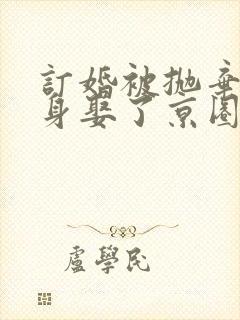 訂婚被抛棄
身娶了京圈
盧學民